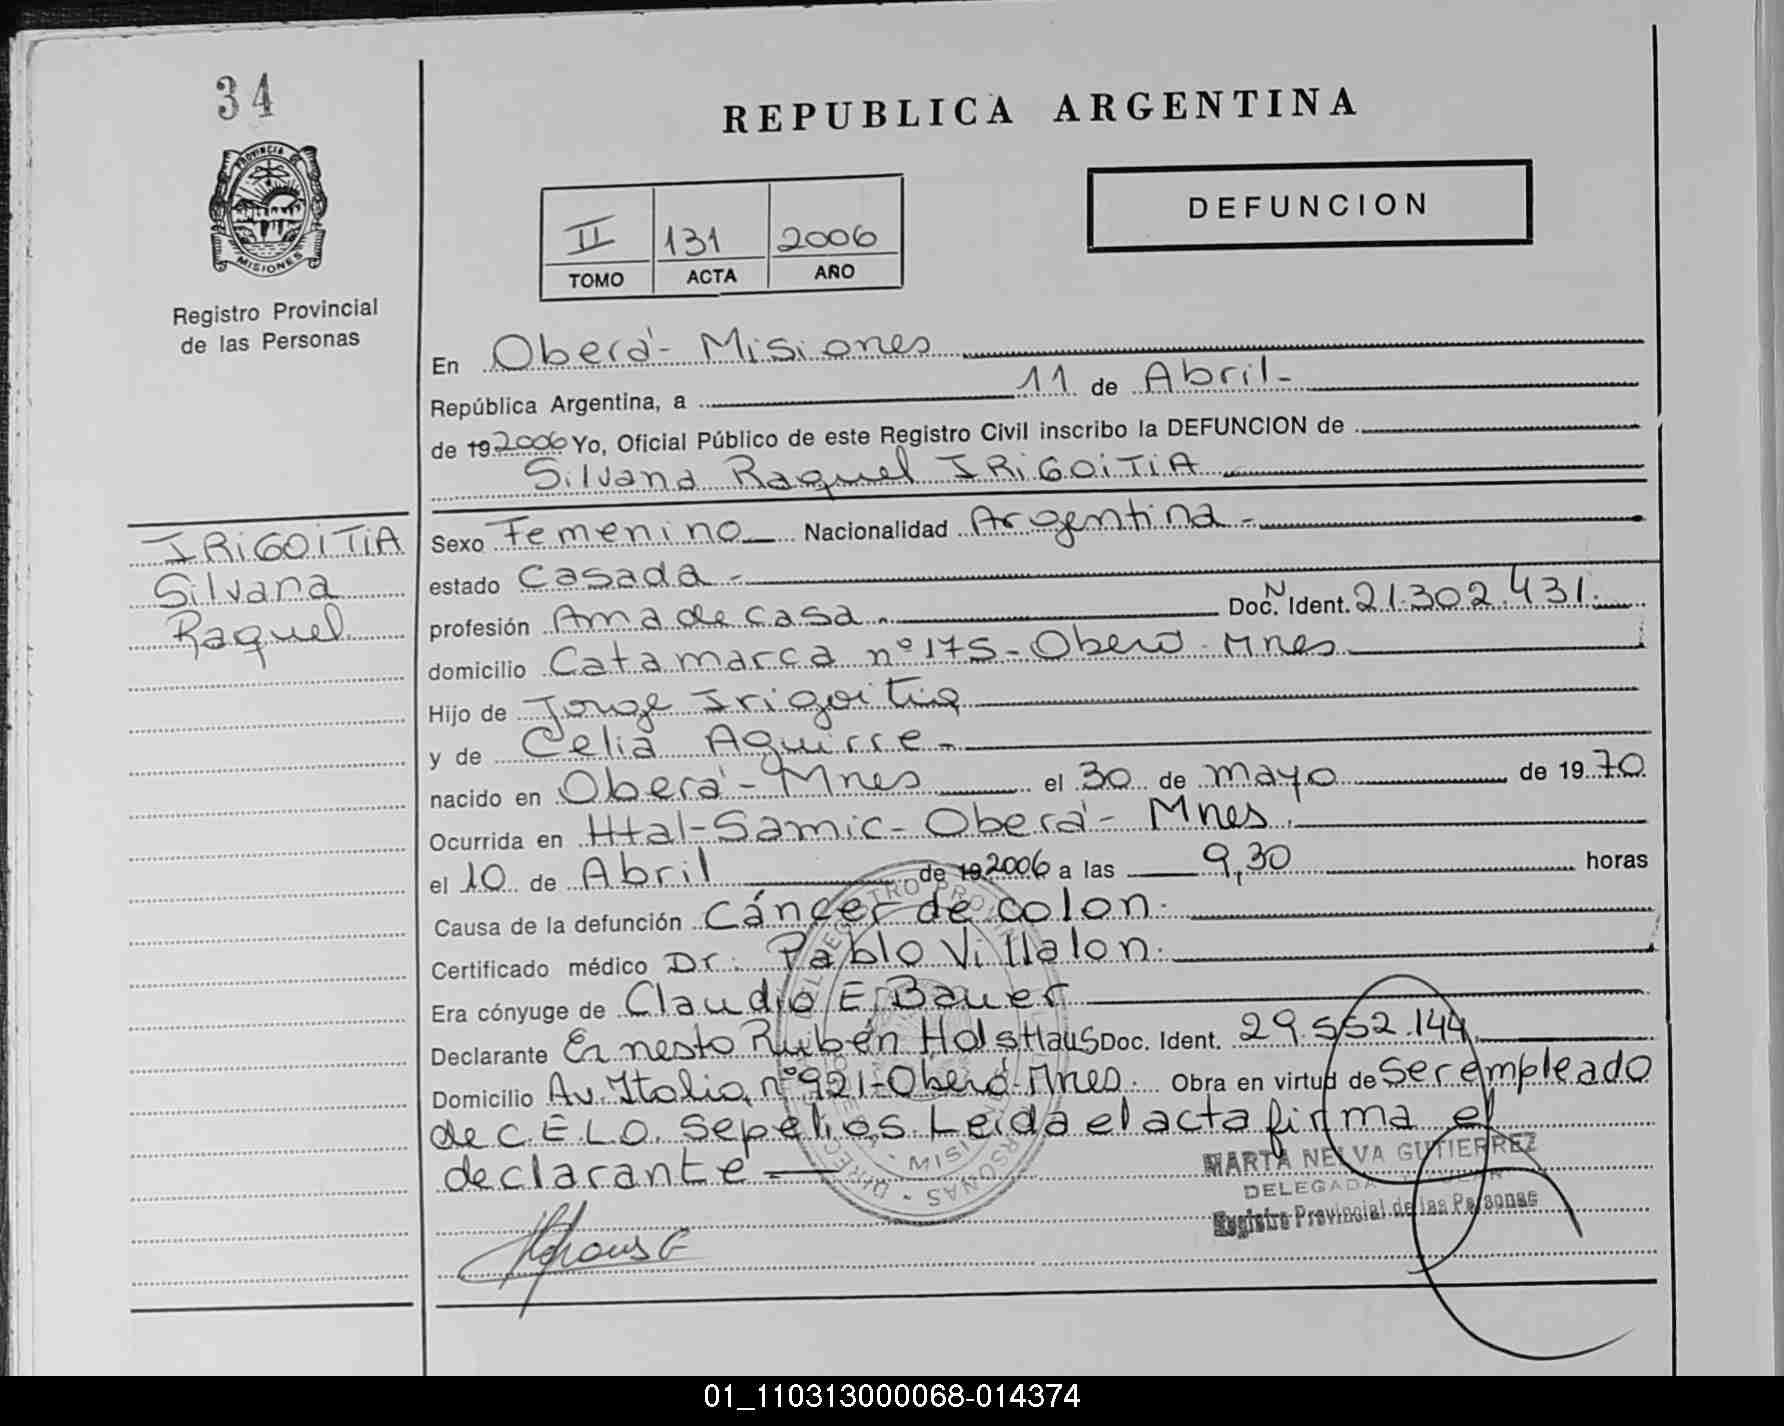 34
REPUBLICA ARGENTINA
PROVINCIA DE
MISIONES
Registro Provincial
de las Personas
II 131 2006
TOMO ACTA AÑO
DEFUNCION
En Oberá - Misiones
República Argentina, a 11 de Abril -
de 19 2006 Yo, Oficial Público de este Registro Civil inscribo la DEFUNCION de
Silvana Raquel IRiGOiTiA
IRiGOiTiA
Silvana
Raquel
Sexo Femenino Nacionalidad Argentina -
estado Casada -
profesión Ama de casa. Doc. N Ident. 21.302.431.
domicilio Catamarca nº 175 - Oberá - Mnes
Hijo de Jorge Irigoitia
y de Celia Aguirre -
nacido en Oberá - Mnes el 30 de mayo de 19 70
Ocurrida en Htal - Samic - Oberá - Mnes.
el 10 de Abril de 19 2006 a las 9,30 horas
Causa de la defunción Cáncer de colon.
Certificado médico Dr. Pablo Villalon.
Era cónyuge de Claudio E. Bauer
Declarante Ernesto Rubén HolsHaus Doc. Ident. 29.552.144
Domicilio Av. Italia nº 921 - Oberá - Mnes. Obra en virtud de ser empleado
de C.E.L.O. Sepelios. Leida el acta firma el
declarante -
MARTA NELVA GUTIERREZ
DELEGADA TITULAR
Registro Provincial de las Personas
01_110313000068-014374